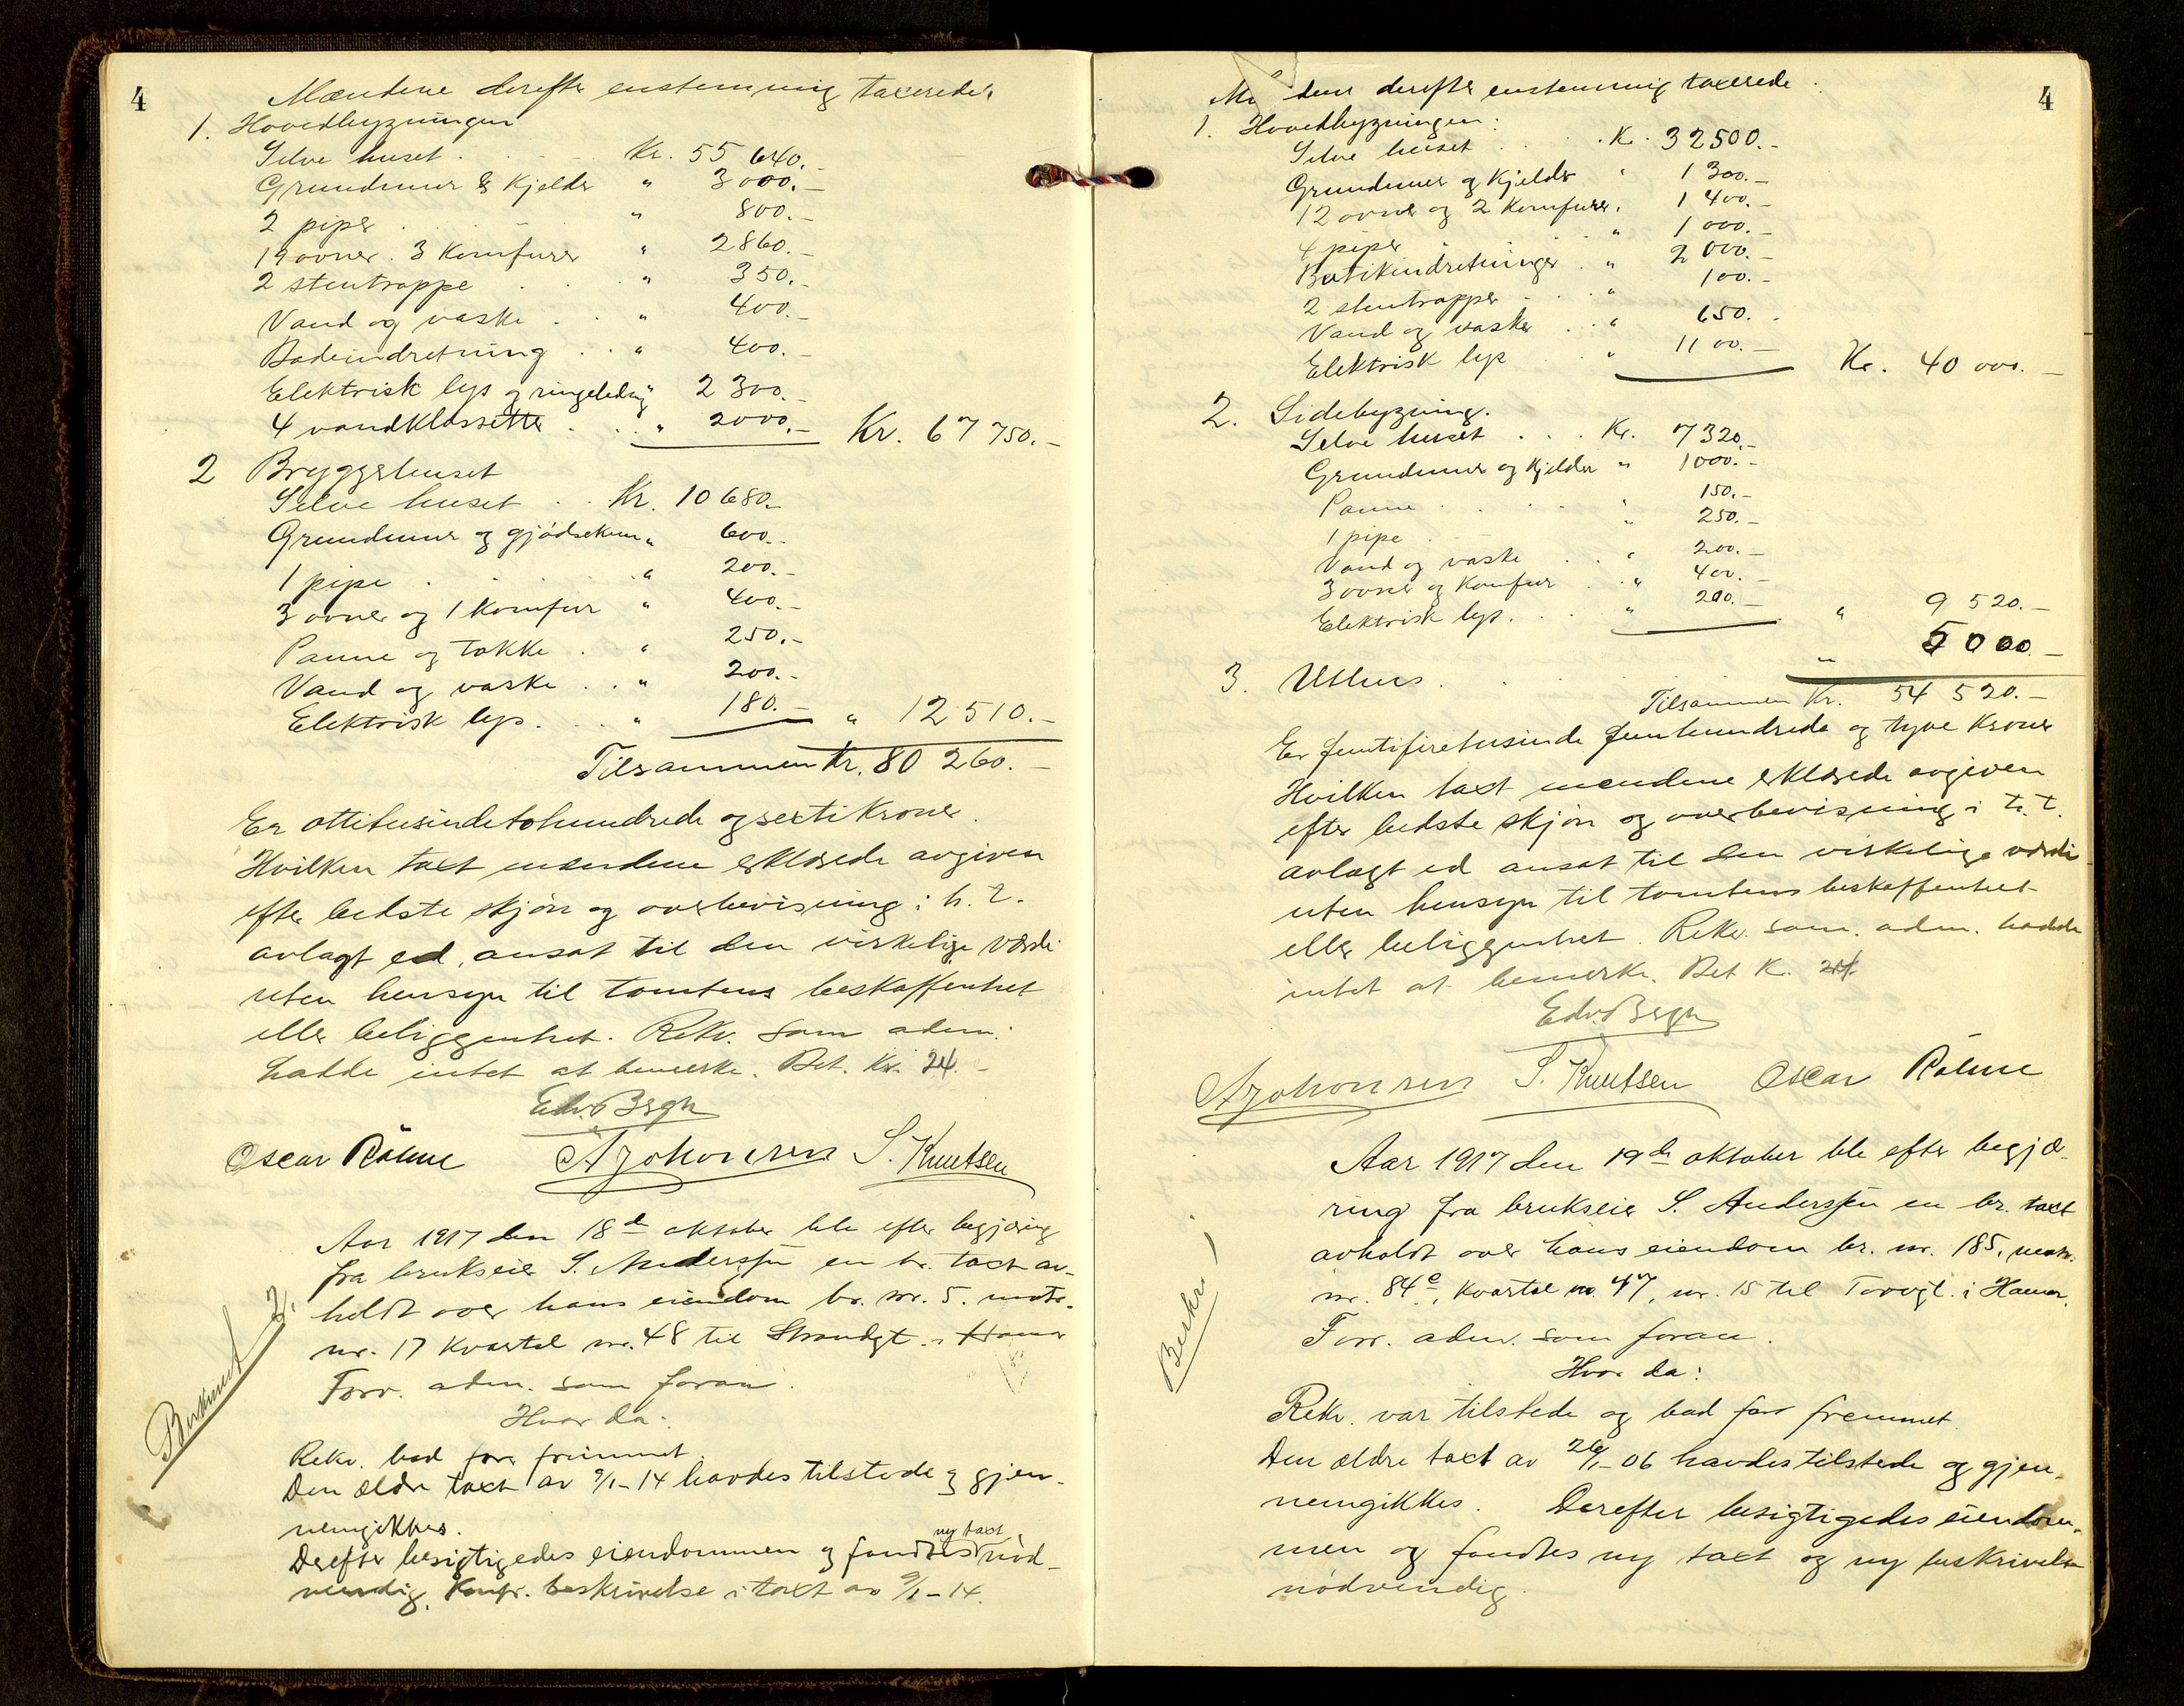 4
Mændene derefter enstemmig taxerede:
1. Hovedbygningen
Selve huset . . . Kr. 55 640.-
Grundmur & Kjelder " 3000.-
2 piper . . . " 800.-
19 ovner. 3 Komfurer " 2860.-
2 stentrappe . . . " 350.-
Vand og vaske . . " 400.-
Badeindretning . . " 400.-
Elektrisk lys og ringeledng " 2 300.-
4 vandklossetter . . " 2000.- Kr. 67 750.-
2 Bryggerhuset
Selve huset . . Kr. 10 680.-
Grundmur og gjødsekum " 600.-
1 pipe . . . " 200.-
3 ovner og 1 Komfur " 400.-
Panne og takke . " 250.-
Vand og vaske . . " 200.-
Elektrisk lys. . . " 180.- " 12 510.-
Tilsammen Kr. 80 260.-
Er ottitusindetohundrede og sexti Kroner.
Hvilken taxt mændene erklærede avgiven
efter bedste skjøn og overbevisning i h. t.
avlagt ed, ansat til den virkelige værdi
uten hensyn til tomtens beskaffenhet
eller beliggenhet. Rekv. som adm.
hadde intet at bemerke. Bet. Kr. 24.-
Edv. Bergh
Oscar Røhne A Johansen S. Knutsen
Aar 1917 den 18de oktober ble efter begjæring
fra brukseier S. Anderssen en br. taxt av-
holdt over hans eiendom br. nr. 5. matr.
nr. 17 Kvartal nr. 48 til Strandgt. i Hamar
Forr. adm. som foran.
Hvor da:
Rekv. bad forr fremmet.
Den ældre taxt av 9/1-14 havdes tilstede og gjen-
nemgikkes.
ny taxt
Derefter besigtigedes eiendommen og fandtes nød-
vendig. Konfr. beskrivelse i taxt av 9/1-14.
Beskrevet 2.
4
Mændene derefter enstemmig taxerede:
1. Hovedbygningen:
Selve huset . . . Kr. 32500.-
Grundmur og Kjelder " 1 300.-
12 ovner og 2 Komfurer. 1 400.-
4 piper . . " 1 000.-
Butikindretninger . " 2 000.-
2 stentrapper . . . " 100.-
Vand og vasker . . " 650.-
Elektrisk lys . . " 1100.- Kr. 40 000.-
2. Sidebygning.
Selve huset . . . Kr. 7320.-
Grundmur og Kjelder " 1000.-
Panne . . . . " 150.-
1 pipe . . . " 250.-
Vand og vaske . . " 200.-
3 ovner og Komfur . . " 400.-
Elektrisk lys. . . " 200.- " 9 520.-
3. Uthus. . . . " 5000.-
Tilsammen Kr. 54 520.-
Er femtifiretusinde femhundrede og tyve Kroner
Hvilken taxt mændene erklærede avgiven
efter bedste skjøn og overbevisning i h. t.
avlagt ed ansat til den virkelige værdi
uten hensyn til tomtens beskaffenhet
eller beliggenhet. Rekv. som adm. hadde
intet at bemerke. Bet K. 24
Edv. Bergh
A Johansen S. Knutsen Oscar Røhne
Aar 1917 den 19de oktober ble efter begjæ-
ring fra brukseier S. Anderssen en br. taxt
avholdt over hans eiendom br. nr. 185, matr.
nr. 84e, Kvartal no. 47, nr. 15 til Torvgt. i Hamar.
Forr. adm. som foran.
Hvor da:
Rekv. var tilstede og bad forr fremmet.
Den ældre taxt av 26/1-06 havdes tilstede og gjen-
nemgikkes. Derefter besigtigedes eiendom-
men og fandtes ny taxt og ny beskrivelse
nødvendig.
Beskr. 1